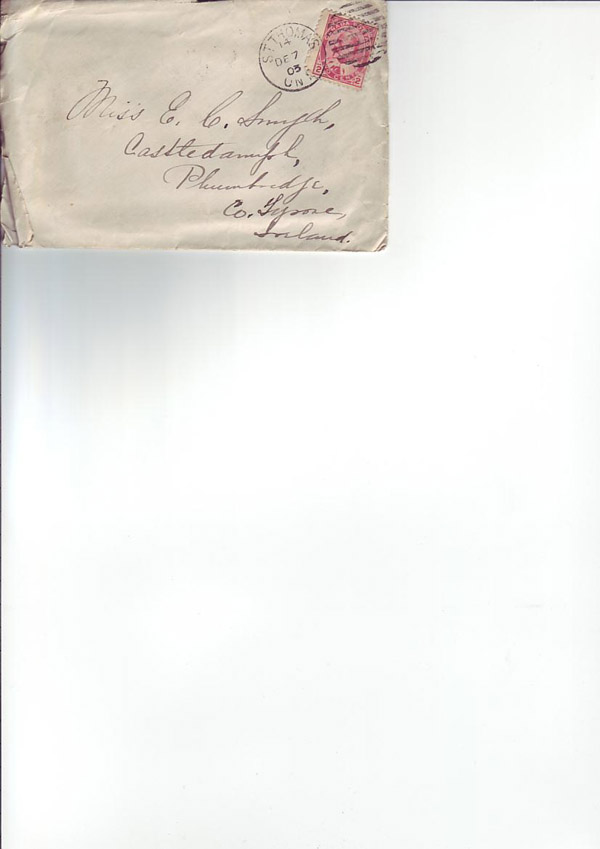 ST. THOMAS
14
DE 7
03
ONT
2 2
Miss E. C. Smyth,
Castledamph,
Plumbridge,
Co. Tyrone,
Ireland.